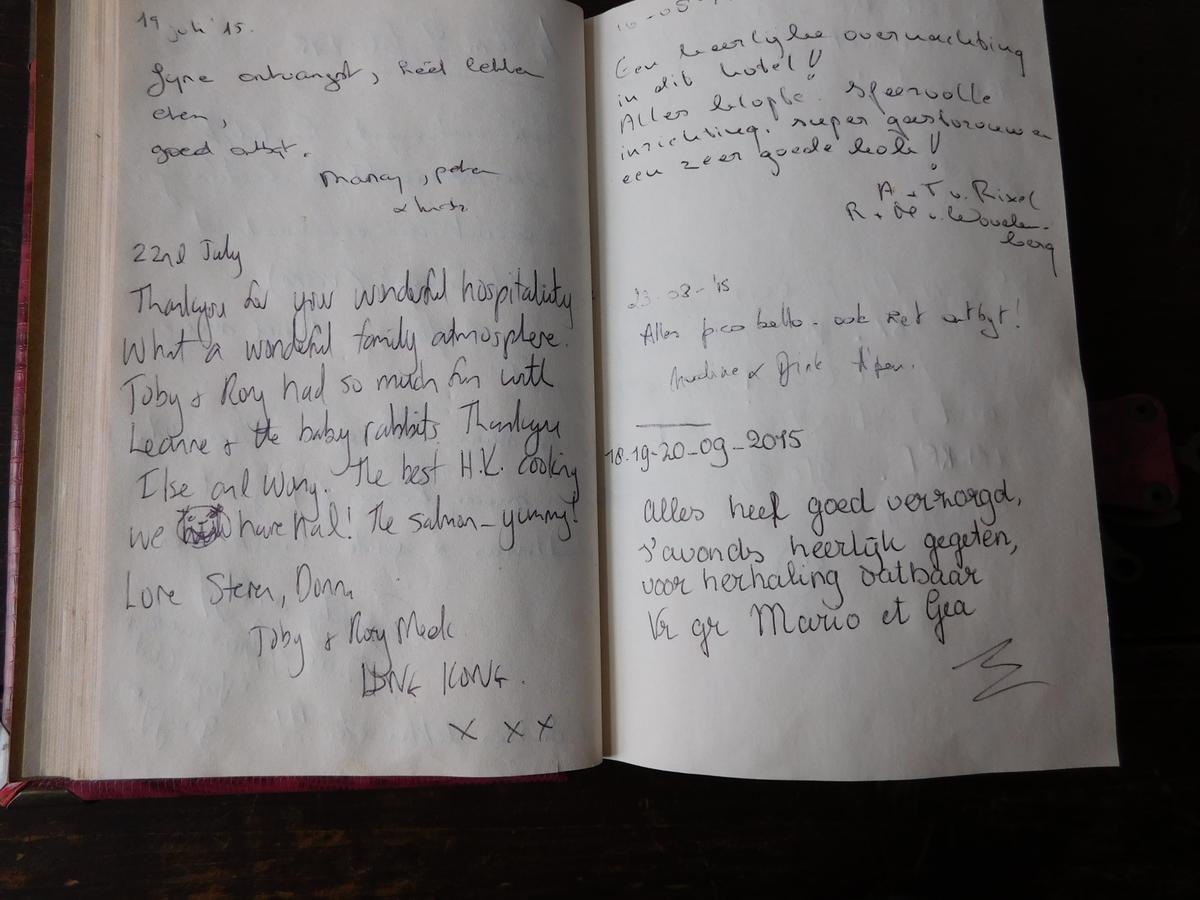 19 juli '15.
fijne ontvangst, heel lekker
eten,
goed ontbijt.
22nd July
Thankyou for your wonderful hospitality
What a wonderful family atmosphere.
Toby & Rory had so much fun with
Leanne & the baby rabbits. Thankyou
Ilse and Wang. The best H.K. cooking
we have had! The salmon - yummy!
Love Steven, Donna
Toby & Rory Meek
HONG KONG.
X X X
Een heerlijke overnachting
in dit hotel!!
Alles klopte. Sfeervolle
inrichting, super gastvrouw en
een zeer goede kok!!
A + T v. Rixel
R + M v. Wouden-
berg
23-08-'15
Alles pico bello - ook het ontbijt!
18-19-20-09-2015
alles heel goed verzorgd,
s'avonds heerlijk gegeten,
voor herhaling vatbaar
Vr gr Mario et Gea